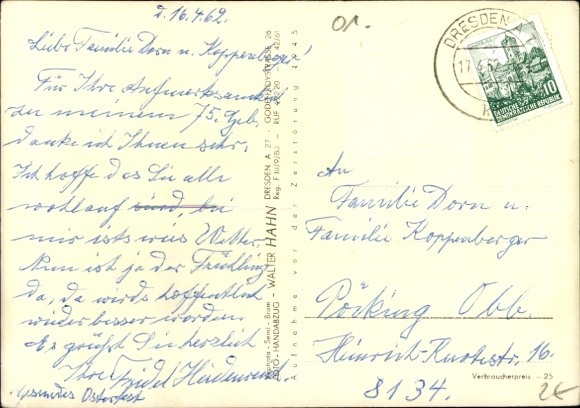 d. 16.4.62.
Liebe Familie Dorn u. Koppenberger!
Für Ihre Aufmerksamkeit
zu meinem 75. Geb.
danke ich Ihnen sehr.
Ich hoffe das Sie alle
wohlauf sind, bei
mir ists weis Wetter.
Nun ist ja der Frühling
da, da wirds hoffentlich
wieder besser werden.
Es grüßt Sie herzlich
Ihre Friedel
gesundes Osterfest
01.
WALTER HAHN DRESDEN A 27
FOTO-HANDABZUG
Aufnahme vor der Zerstörung 1945
DRESDEN A
17.4.62
10
DEUTSCHE
DEMOKRATISCHE REPUBLIK
An
Familie Dorn u.
Familie Koppenberger
Pöcking Obb.
Heinrich-Knotestr. 16.
8134.
Verbraucherpreis -25
2€